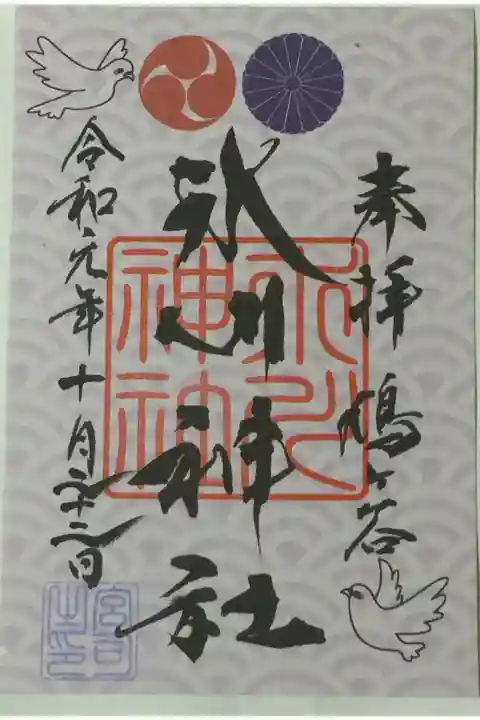 奉拝 鳩ヶ谷
氷川神社
氷川
神社
令和元年十月二十二日
宮司
之印